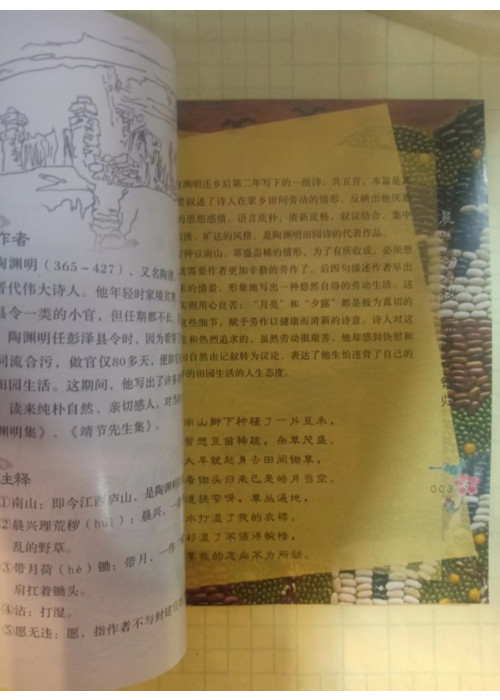 作者
陶渊明（365－427），又名陶潜，
晋代伟大诗人。他年轻时家境贫寒，
县令一类的小官，但任期都不长。
陶渊明任彭泽县令时，因为看
同流合污，做官仅80多天，便辞
田园生活。这期间，他写出了许多
读来纯朴自然、亲切感人，对
渊明集》、《靖节先生集》。
注释
①南山：即今江西庐山，是陶渊明
②晨兴理荒秽（huì）：晨兴，一
乱的野草。
③带月荷（hè）锄：带月，一作
肩扛着锄头。
④沾：打湿。
⑤愿无违：愿，指作者不与封建
陶渊明还乡后第二年写下的一组诗，共五首。本篇是其
叙述了诗人在家乡田间劳动的情形，反映出他厌
的思想感情。语言质朴，清新流畅，叙议结合，集中
淡、旷达的风格，是陶渊明田园诗的代表作品。
种豆南山，草盛苗稀的情形，为了有所收成，必须想
就需要作者更加辛勤的劳作了。后四句描述作者早出
的情景，形象地写出一种悠然自得的劳动生活。这
实则用心良苦：“月亮”和“夕露”都是极为真切的
这些细节，赋予劳作以健康而清新的诗意。诗人对这
和热烈追求的，虽然劳动很艰苦，他却感到快慰和
自然由记叙转为议论，表达了他生怕违背了自己的
的田园生活的人生态度。
南山脚下种植了一片豆禾，
曾想豆苗稀疏，杂草茂盛。
大早就起身去田间锄草，
着锄头归来已是皓月当空。
道狭窄呀，草丛遍地，
水打湿了我的衣襟。
衫湿了不值得惋惜，
我的志向不为所动。
晨
归
003